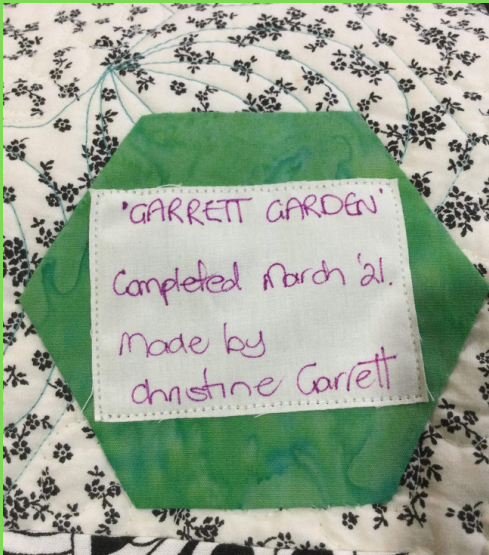 'GARRETT GARDEN'
Completed March '21.
Made by
Christine Garrett